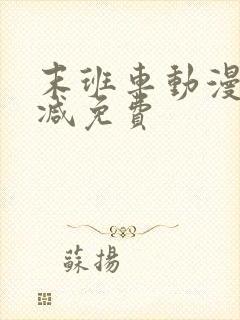 末班车動漫
减免費
蘇揚